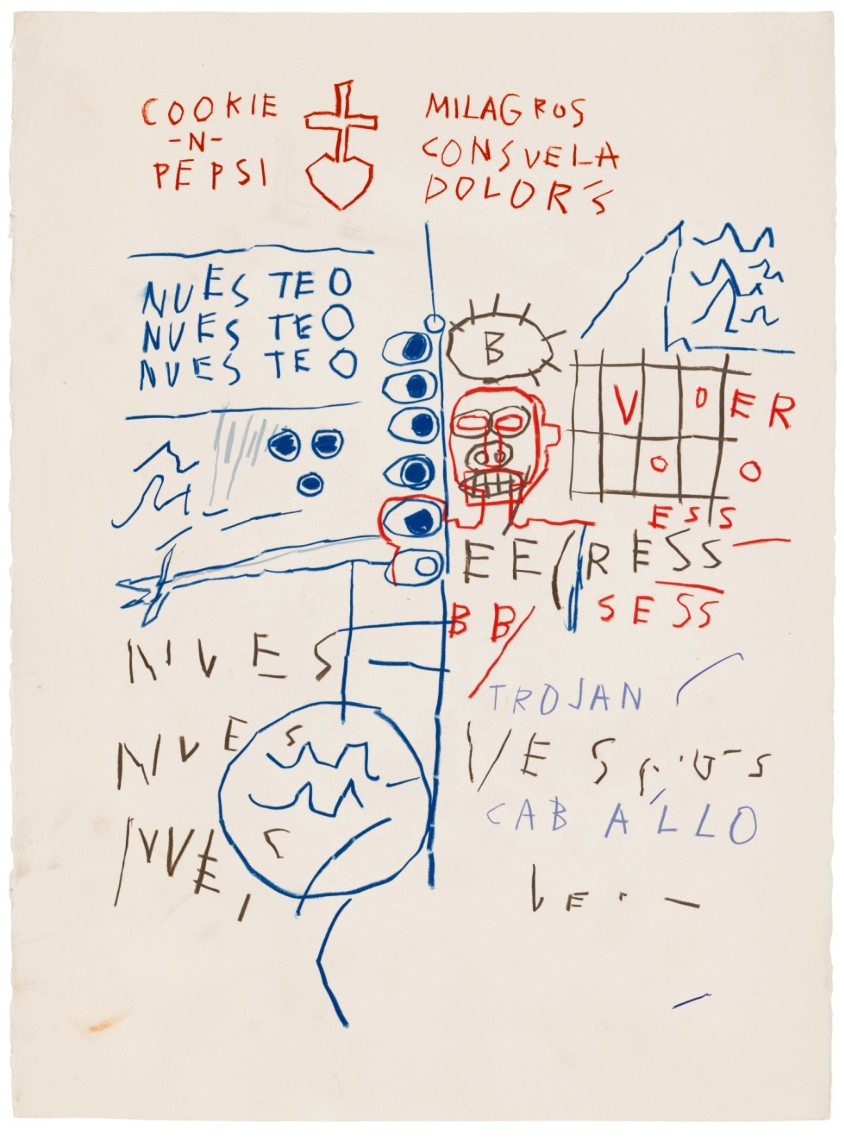 COOKIE
-N-
PEPSI
MILAGROS
CONSUELA
DOLOR'S
NUES TEO
NUES TEO
NUES TEO
B
V D E R
O O
ESS
EE RESS
BB/
SESS
NVES
TROJAN
NVES
CABALLO